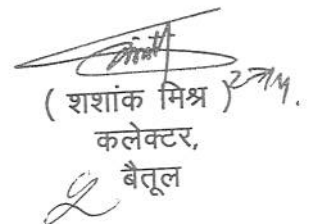 ( शशांक मिश्र )
कलेक्टर,
बैतूल